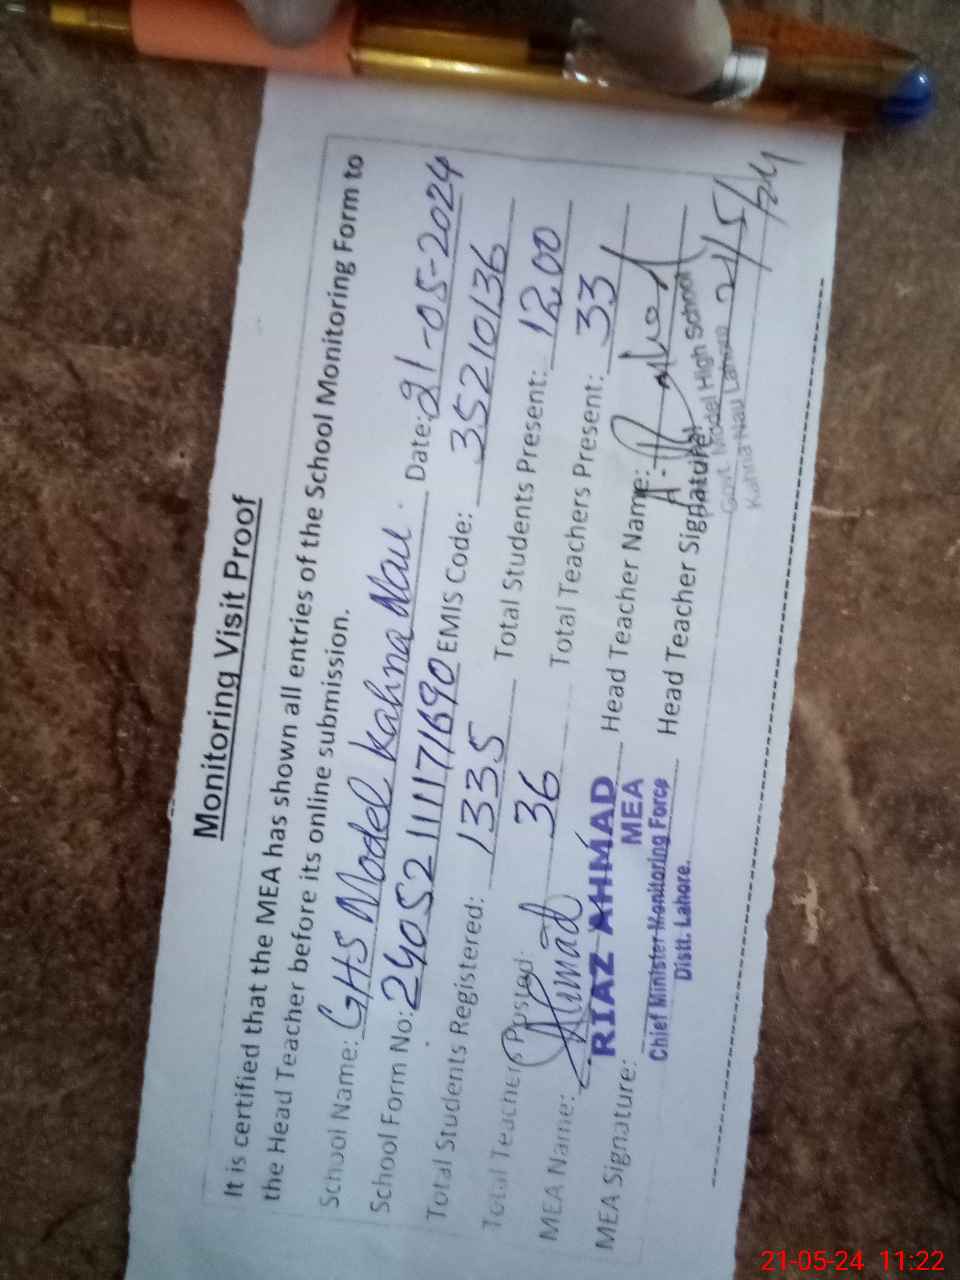 Monitoring Visit Proof
It is certified that the MEA has shown all entries of the School Monitoring Form to
the Head Teacher before its online submission.
School Name: GHS Model Kahna Nau. Date: 21-05-2024
School Form No: 24052111171690 EMIS Code: 35210136
Total Students Registered: 1335 Total Students Present: 1200
Total Teacher Posted: 36 Total Teachers Present: 33
MEA Name: Ahmad Head Teacher Name:
RIAZ AHMAD
MEA
MEA Signature: Head Teacher Signature:
Chief Minister Monitoring Force
Distt. Lahore.
Govt. Model High School
Kahna Nau Lahore 21/5/24
21-05-24 11:22